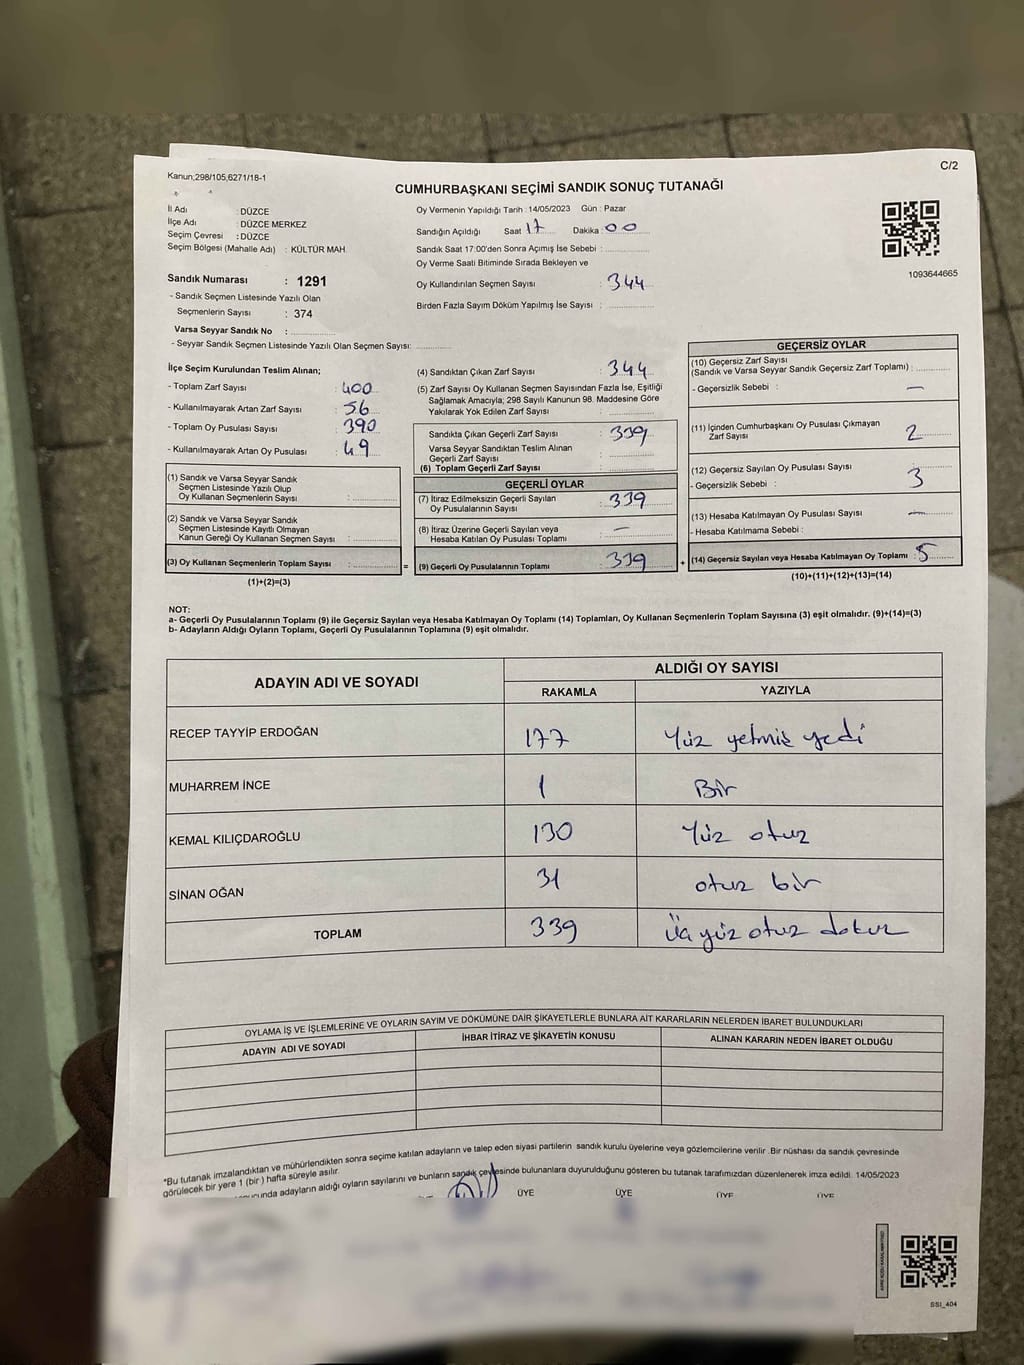 Kanun;298/105,6271/18-1
C/2
CUMHURBAŞKANI SEÇİMİ SANDIK SONUÇ TUTANAĞI
İl Adı : DÜZCE
İlçe Adı : DÜZCE MERKEZ
Seçim Çevresi : DÜZCE
Seçim Bölgesi (Mahalle Adı) : KÜLTÜR MAH.
Sandık Numarası : 1291
- Sandık Seçmen Listesinde Yazılı Olan
Seçmenlerin Sayısı : 374
Varsa Seyyar Sandık No :
- Seyyar Sandık Seçmen Listesinde Yazılı Olan Seçmen Sayısı:
Oy Vermenin Yapıldığı Tarih : 14/05/2023 Gün : Pazar
Sandığın Açıldığı Saat 17 Dakika 00
Sandık Saat 17:00'den Sonra Açımış İse Sebebi :
Oy Verme Saati Bitiminde Sırada Bekleyen ve
Oy Kullandırılan Seçmen Sayısı : 344
Birden Fazla Sayım Döküm Yapılmış İse Sayısı :
1093644665
İlçe Seçim Kurulundan Teslim Alınan;
- Toplam Zarf Sayısı : 400
- Kullanılmayarak Artan Zarf Sayısı : 56
- Toplam Oy Pusulası Sayısı : 390
- Kullanılmayarak Artan Oy Pusulası : 49
(1) Sandık ve Varsa Seyyar Sandık
Seçmen Listesinde Yazılı Olup
Oy Kullanan Seçmenlerin Sayısı :
(2) Sandık ve Varsa Seyyar Sandık
Seçmen Listesinde Kayıtlı Olmayan
Kanun Gereği Oy Kullanan Seçmen Sayısı :
(3) Oy Kullanan Seçmenlerin Toplam Sayısı : =
(1)+(2)=(3)
(4) Sandıktan Çıkan Zarf Sayısı : 344
(5) Zarf Sayısı Oy Kullanan Seçmen Sayısından Fazla İse, Eşitliği
Sağlamak Amacıyla; 298 Sayılı Kanunun 98. Maddesine Göre
Yakılarak Yok Edilen Zarf Sayısı :
Sandıkta Çıkan Geçerli Zarf Sayısı : 339
Varsa Seyyar Sandıktan Teslim Alınan
Geçerli Zarf Sayısı :
(6) Toplam Geçerli Zarf Sayısı :
GEÇERLİ OYLAR
(7) İtiraz Edilmeksizin Geçerli Sayılan
Oy Pusulalarının Sayısı : 339
(8) İtiraz Üzerine Geçerli Sayılan veya
Hesaba Katılan Oy Pusulası Toplamı : —
(9) Geçerli Oy Pusulalarının Toplamı : 339 +
GEÇERSİZ OYLAR
(10) Geçersiz Zarf Sayısı
(Sandık ve Varsa Seyyar Sandık Geçersiz Zarf Toplamı) :
- Geçersizlik Sebebi : —
(11) İçinden Cumhurbaşkanı Oy Pusulası Çıkmayan
Zarf Sayısı 2
(12) Geçersiz Sayılan Oy Pusulası Sayısı :
- Geçersizlik Sebebi : 3
(13) Hesaba Katılmayan Oy Pusulası Sayısı : —
- Hesaba Katılmama Sebebi :
(14) Geçersiz Sayılan veya Hesaba Katılmayan Oy Toplamı : 5
(10)+(11)+(12)+(13)=(14)
NOT:
a- Geçerli Oy Pusulalarının Toplamı (9) ile Geçersiz Sayılan veya Hesaba Katılmayan Oy Toplamı (14) Toplamları, Oy Kullanan Seçmenlerin Toplam Sayısına (3) eşit olmalıdır. (9)+(14)=(3)
b- Adayların Aldığı Oyların Toplamı, Geçerli Oy Pusulalarının Toplamına (9) eşit olmalıdır.
ADAYIN ADI VE SOYADI ALDIĞI OY SAYISI
RAKAMLA YAZIYLA
RECEP TAYYİP ERDOĞAN 177 Yüz yetmiş yedi
MUHARREM İNCE 1 Bir
KEMAL KILIÇDAROĞLU 130 Yüz otuz
SİNAN OĞAN 31 otuz bir
TOPLAM 339 üç yüz otuz dokuz
OYLAMA İŞ VE İŞLEMLERİNE VE OYLARIN SAYIM VE DÖKÜMÜNE DAİR ŞİKAYETLERLE BUNLARA AİT KARARLARIN NELERDEN İBARET BULUNDUKLARI
ADAYIN ADI VE SOYADI İHBAR İTİRAZ VE ŞİKAYETİN KONUSU ALINAN KARARIN NEDEN İBARET OLDUĞU
*Bu tutanak imzalandıktan ve mühürlendikten sonra seçime katılan adayların ve talep eden siyasi partilerin sandık kurulu üyelerine veya gözlemcilerine verilir. Bir nüshası da sandık çevresinde
görülecek bir yere 1 (bir ) hafta süreyle asılır.
adayların aldığı oyların sayılarını ve bunların sandık çevresinde bulunanlara duyurulduğunu gösteren bu tutanak tarafımızdan düzenlenerek imza edildi. 14/05/2023
ÜYE ÜYE ÜYE ÜYE
SSI_404